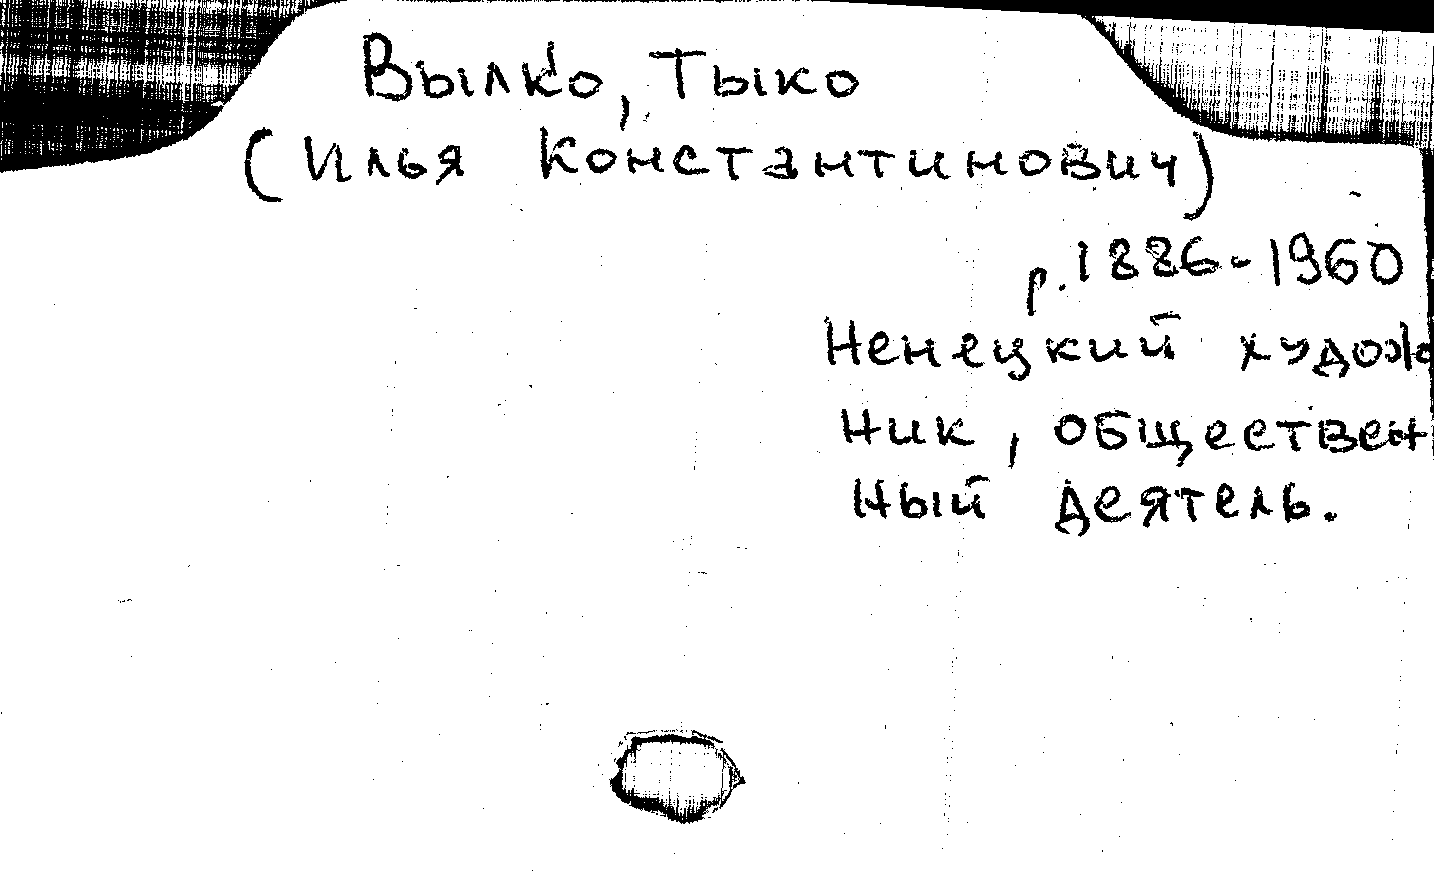 Вылко, Тыко
(Илья Константинович)
р. 1886-1960
Ненецкий худож
ник, обществен
ный деятель.